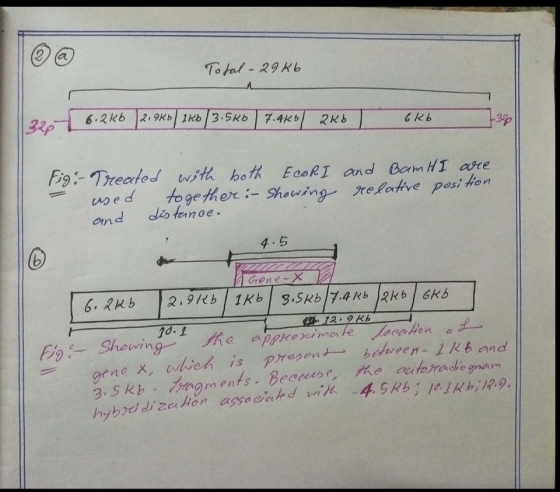 2 a
Total - 29 Kb
32p 6.2Kb 2.9Kb 1Kb 3.5Kb 7.4Kb 2Kb 6Kb 32p
Fig:- Treated with both EcoRI and BamHI are
used together:- Showing relative position
and distance.
b
4.5
Gene-X
6.2Kb 2.9Kb 1Kb 3.5Kb 7.4Kb 2Kb 6Kb
10.1 12.9Kb
Fig:- Showing the approximate location of
gene X, which is present between - 1Kb and
3.5Kb - fragments. Because, the autoradiogram
hybridization associated with - 4.5Kb; 10.1Kb; 12.9.